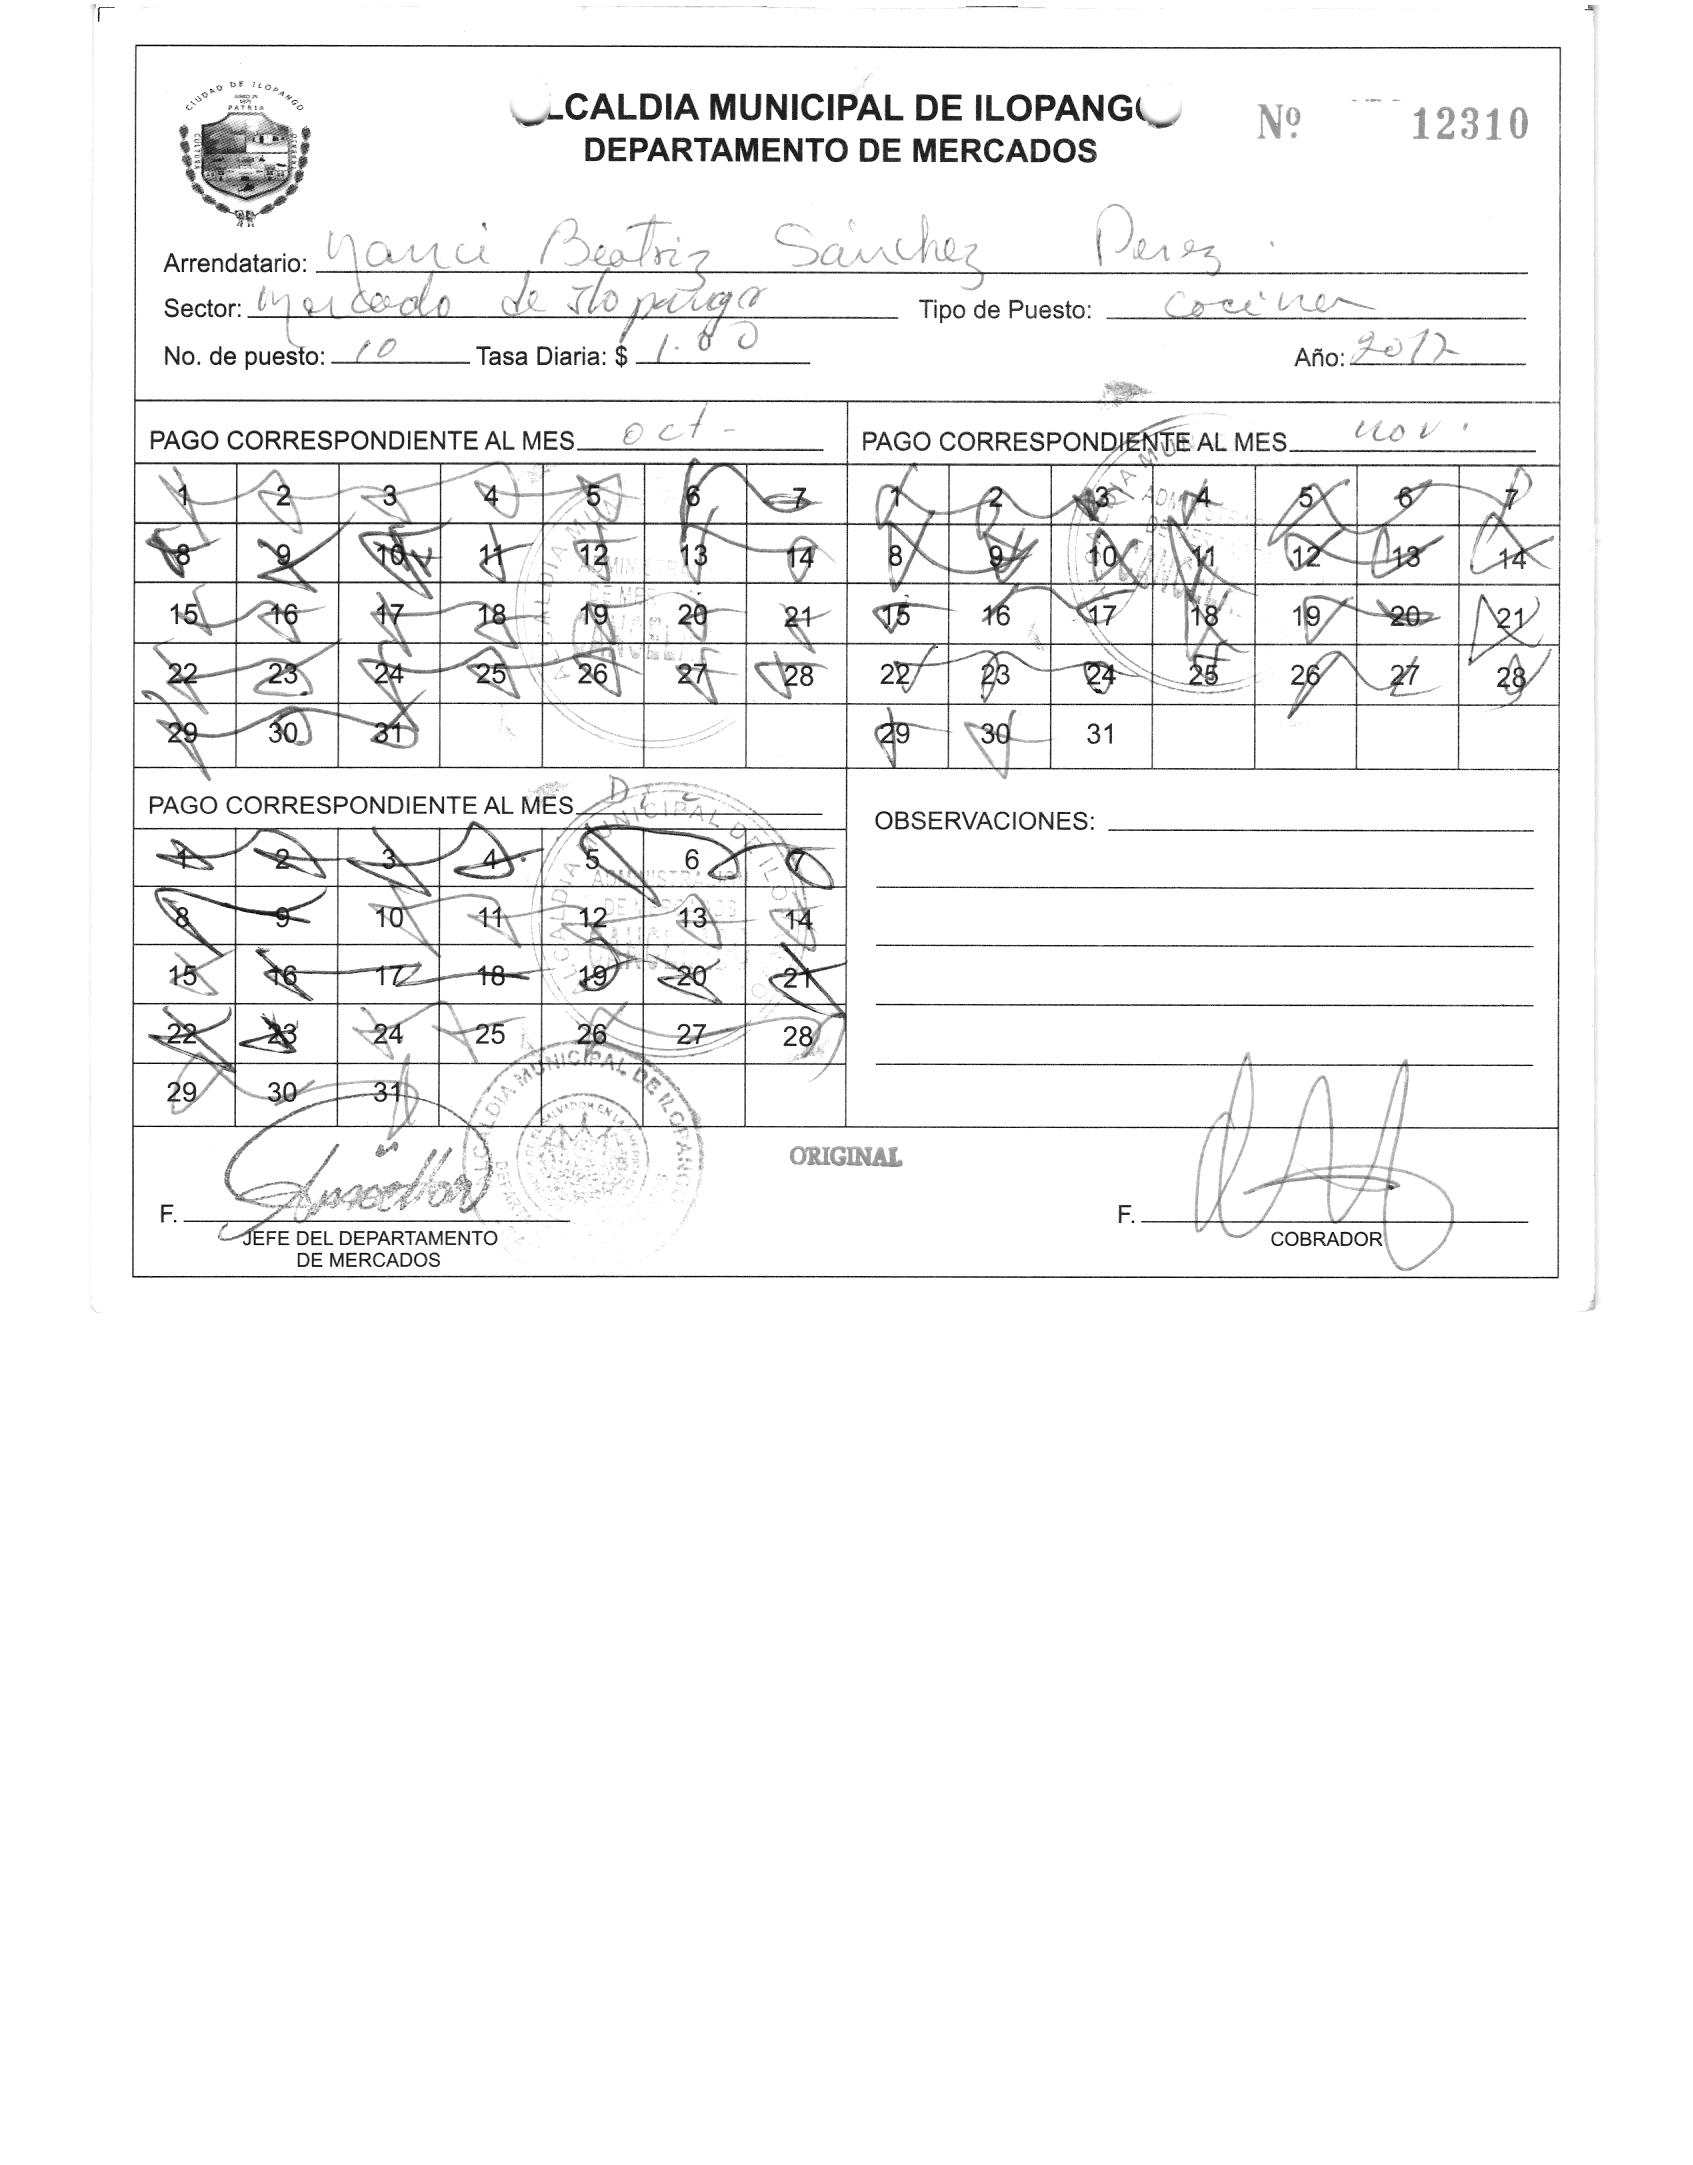 CIUDAD DE ILOPANGO
PATRIA
CULTURA
LCALDIA MUNICIPAL DE ILOPANGO
DEPARTAMENTO DE MERCADOS
Nº 12310
Arrendatario: Nanci Beatriz Sánchez Perez.
Sector: Mercado de Ilopango Tipo de Puesto: Cocina
No. de puesto: 10 Tasa Diaria: $ 1.00 Año: 2012
PAGO CORRESPONDIENTE AL MES oct-
1 2 3 4 5 6 7
8 9 10 11 12 13 14
15 16 17 18 19 20 21
22 23 24 25 26 27 28
29 30 31
PAGO CORRESPONDIENTE AL MES nov.
1 2 3 4 5 6 7
8 9 10 11 12 13 14
15 16 17 18 19 20 21
22 23 24 25 26 27 28
29 30 31
PAGO CORRESPONDIENTE AL MES Dic
1 2 3 4 5 6 7
8 9 10 11 12 13 14
15 16 17 18 19 20 21
22 23 24 25 26 27 28
29 30 31
ALCALDIA MUNICIPAL DE ILOPANGO
OBSERVACIONES:
ALCALDIA MUNICIPAL DE ILOPANGO
ORIGINAL
F.
JEFE DEL DEPARTAMENTO
DE MERCADOS
F.
COBRADOR